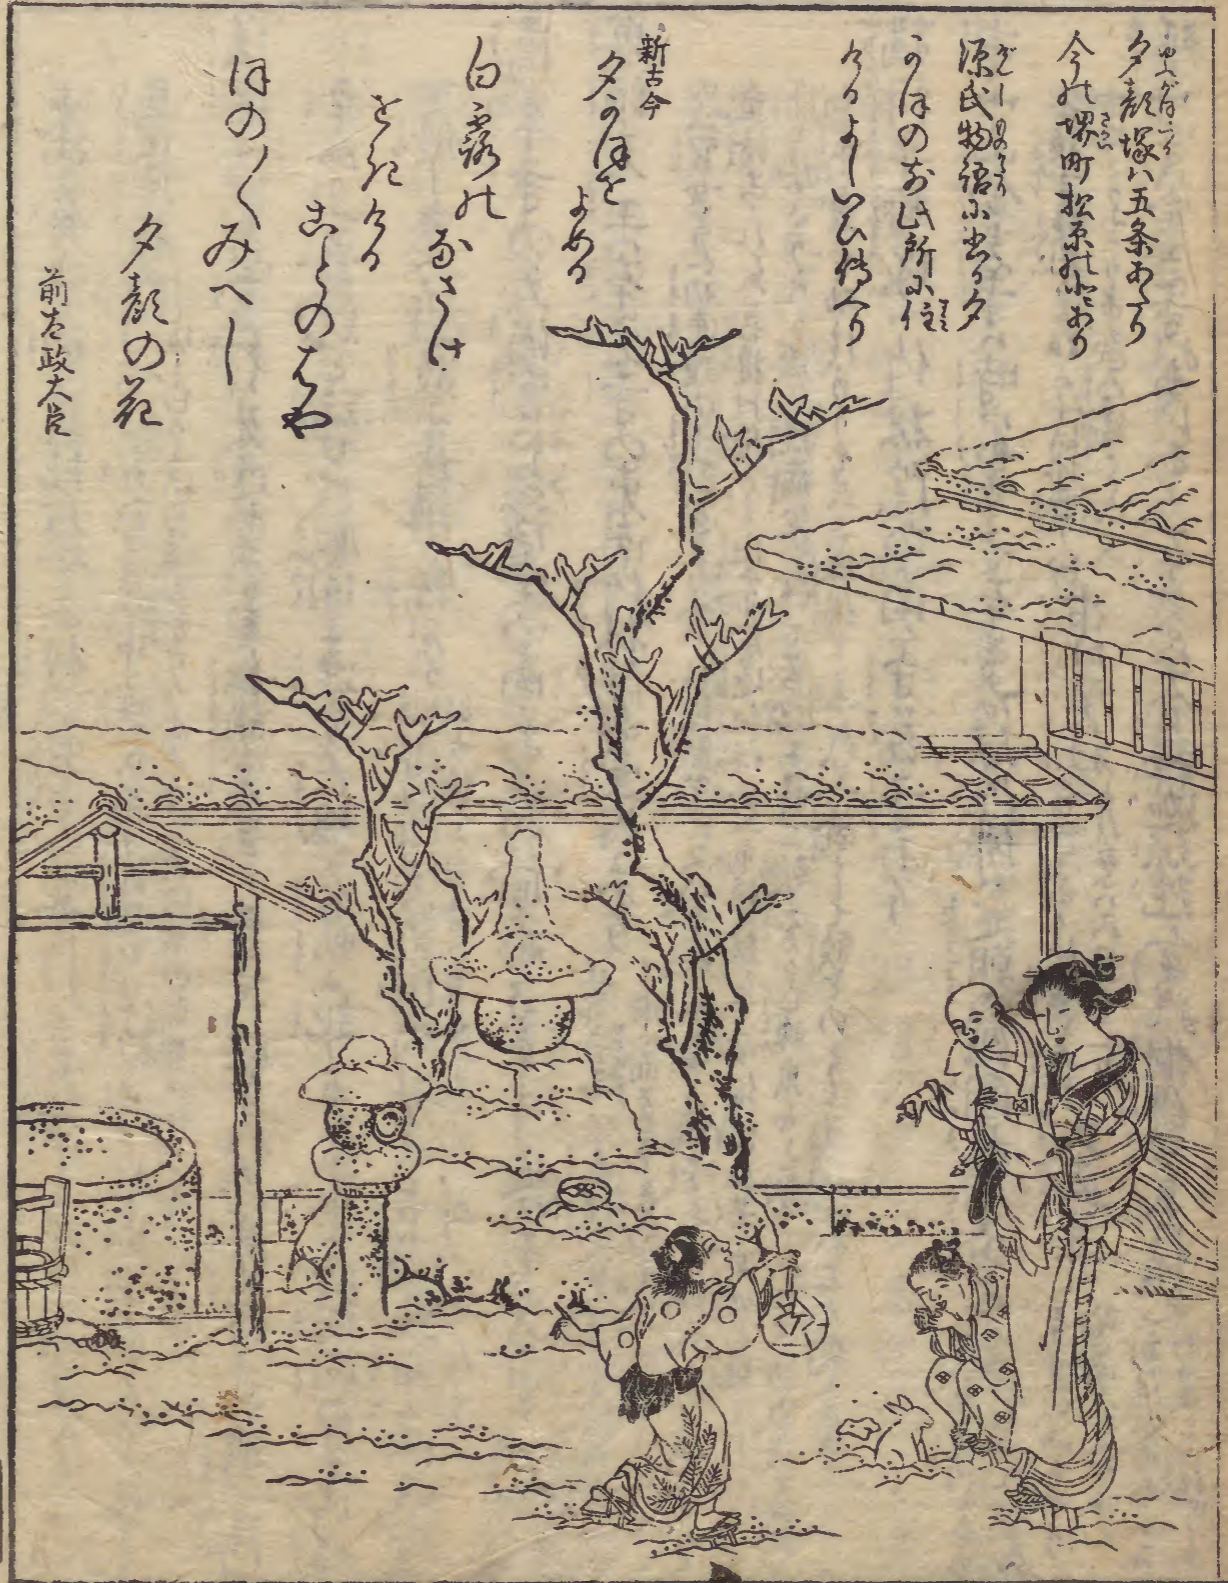 夕顔塚ハ五条あたり
今の堺町松原の北にあり
源氏物語に出る夕
かほの前此所に住
けるよしいひ伝へり
新古今
夕かほを
よめる
白露の
なさけ
をきける
ことのはや
ほの〱みへし
夕顔の花
前太政大臣